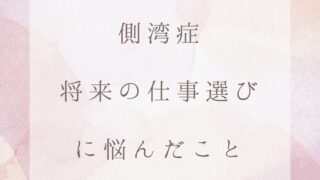 側湾症
将来の仕事選び
に悩んだこと